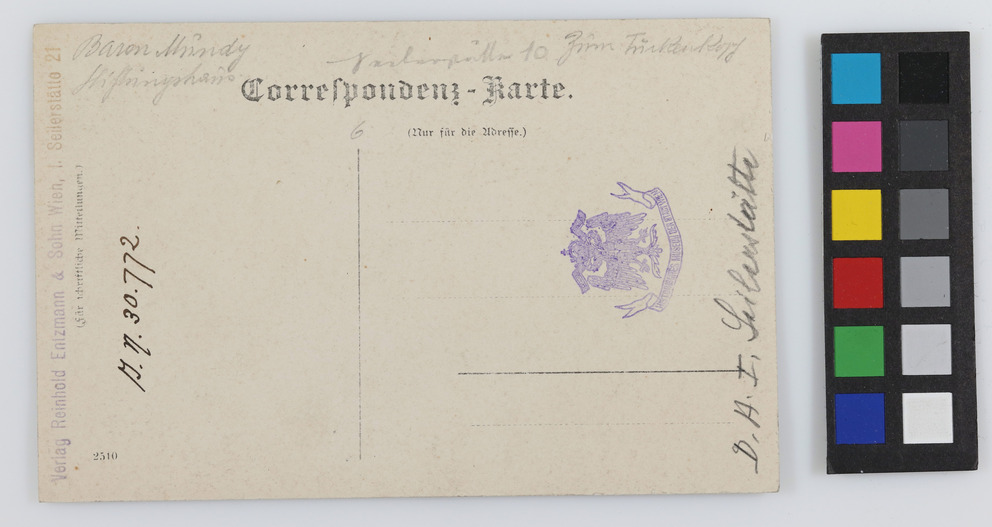 Baron Mundy
Stiftungshaus
Seilerstätte 10 Zum Türkenkopf
Correspondenz-Karte.
(Nur für die Adresse.)
6
Verlag Reinhold Entzmann & Sohn Wien, I. Seilerstätte 21
(Für schriftliche Mitteilungen.)
J. N. 30.772.
2510
D. A. I, Seilerstätte